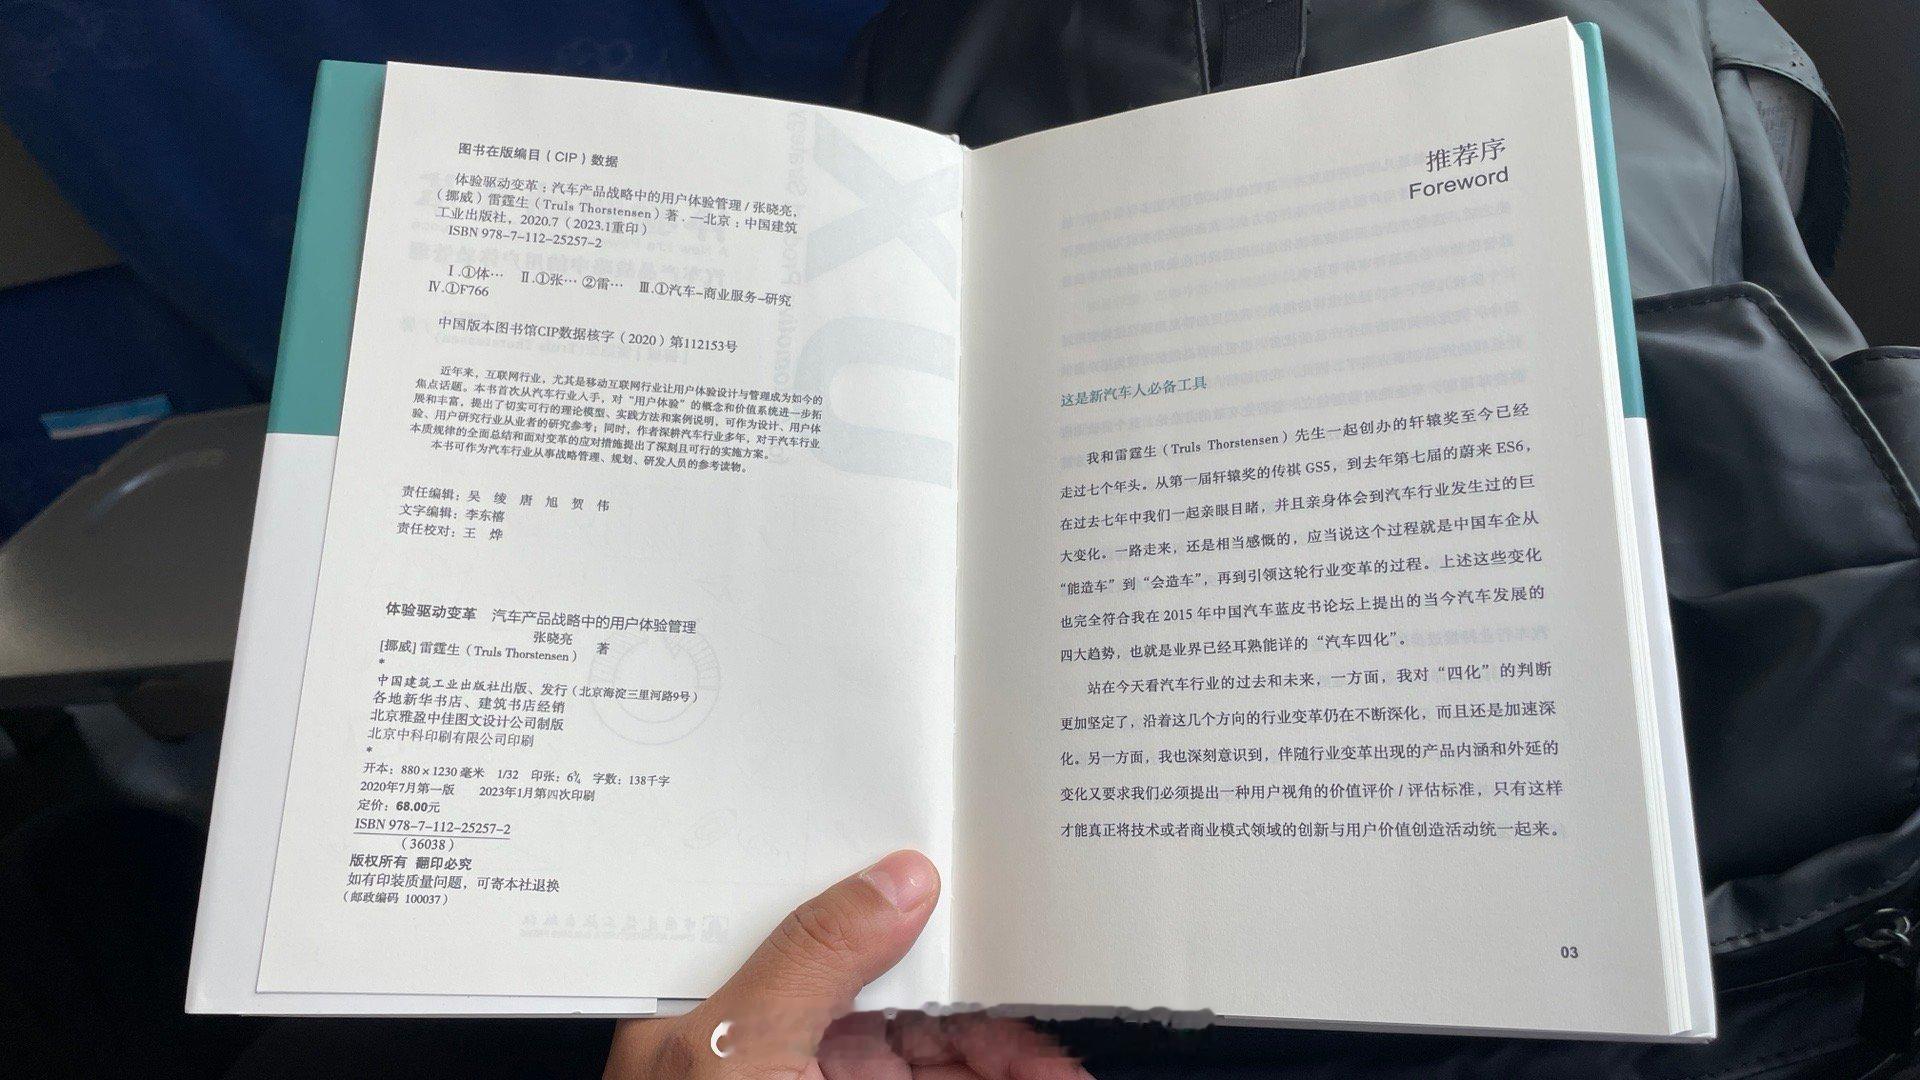 图书在版编目（CIP）数据
体验驱动变革：汽车产品战略中的用户体验管理 / 张晓亮，
（挪威）雷霆生（Truls Thorstensen）著．—北京：中国建筑
工业出版社，2020.7（2023.1重印）
ISBN 978-7-112-25257-2
Ⅰ.①体… Ⅱ.①张… ②雷… Ⅲ.①汽车-商业服务-研究
Ⅳ.①F766
中国版本图书馆CIP数据核字（2020）第112153号
近年来，互联网行业，尤其是移动互联网行业让用户体验设计与管理成为如今的
焦点话题。本书首次从汽车行业入手，对“用户体验”的概念和价值系统进一步拓
展和丰富，提出了切实可行的理论模型、实践方法和案例说明，可作为设计、用户体
验、用户研究行业从业者的研究参考；同时，作者深耕汽车行业多年，对于汽车行业
本质规律的全面总结和面对变革的应对措施提出了深刻且可行的实施方案。
本书可作为汽车行业从事战略管理、规划、研发人员的参考读物。
责任编辑：吴 绫 唐 旭 贺 伟
文字编辑：李东禧
责任校对：王 烨
体验驱动变革 汽车产品战略中的用户体验管理
张晓亮
[挪威] 雷霆生（Truls Thorstensen） 著
*
中国建筑工业出版社出版、发行（北京海淀三里河路9号）
各地新华书店、建筑书店经销
北京雅盈中佳图文设计公司制版
北京中科印刷有限公司印刷
*
开本：880×1230 毫米 1/32 印张：6¾ 字数：138千字
2020年7月第一版 2023年1月第四次印刷
定价：68.00元
ISBN 978-7-112-25257-2
（36038）
版权所有 翻印必究
如有印装质量问题，可寄本社退换
（邮政编码 100037）
推荐序
Foreword
这是新汽车人必备工具
我和雷霆生（Truls Thorstensen）先生一起创办的轩辕奖至今已经
走过七个年头。从第一届轩辕奖的传祺 GS5，到去年第七届的蔚来 ES6，
在过去七年中我们一起亲眼目睹，并且亲身体会到汽车行业发生过的巨
大变化。一路走来，还是相当感慨的，应当说这个过程就是中国车企从
“能造车”到“会造车”，再到引领这轮行业变革的过程。上述这些变化
也完全符合我在 2015 年中国汽车蓝皮书论坛上提出的当今汽车发展的
四大趋势，也就是业界已经耳熟能详的“汽车四化”。
站在今天看汽车行业的过去和未来，一方面，我对“四化”的判断
更加坚定了，沿着这几个方向的行业变革仍在不断深化，而且还是加速深
化。另一方面，我也深刻意识到，伴随行业变革出现的产品内涵和外延的
变化又要求我们必须提出一种用户视角的价值评价 / 评估标准，只有这样
才能真正将技术或者商业模式领域的创新与用户价值创造活动统一起来。
03